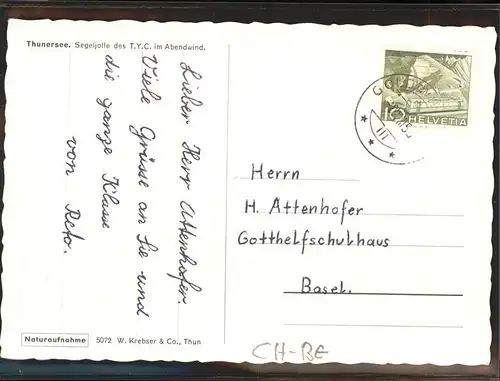 Thunersee. Segeljolle des T.Y.C. im Abendwind.
Lieber Herr Attenhofer.
Viele Grüsse an Sie und
die ganze Klasse
von Reto.
10 HELVETIA
III
Herrn
H. Attenhofer
Gotthelfschulhaus
Basel.
Naturaufnahme 5072 W. Krebser & Co., Thun
CH-BE